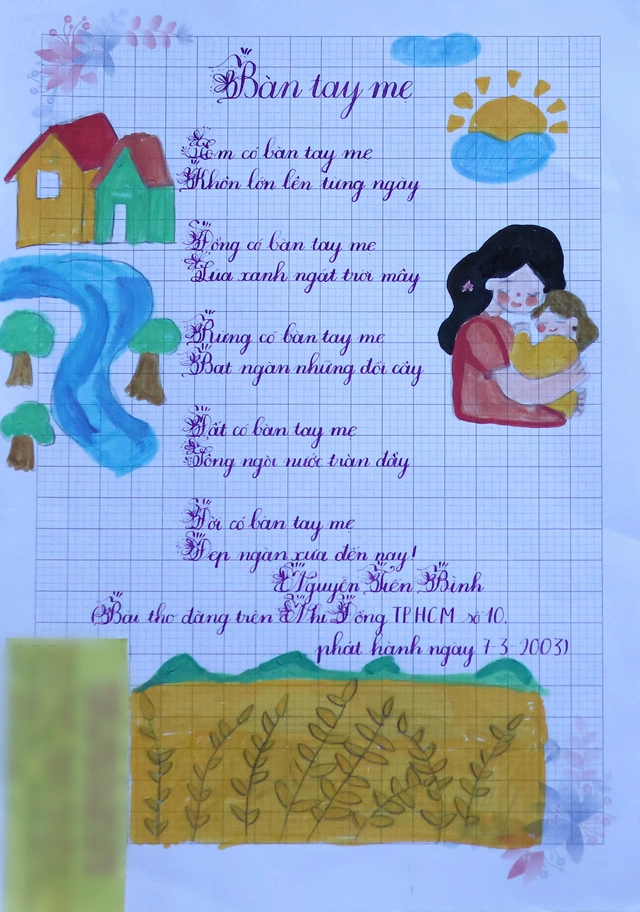 Bàn tay mẹ
Em có bàn tay mẹ
Khôn lớn lên từng ngày
Đồng có bàn tay mẹ
Lúa xanh ngát trời mây
Rừng có bàn tay mẹ
Bạt ngàn những đồi cây
Đất có bàn tay mẹ
Sông ngòi nước tràn đầy
Đời có bàn tay mẹ
Đẹp ngàn xưa đến nay!
Nguyễn Tiến Bình
(Bài thơ đăng trên Nhi Đồng TPHCM số 10,
phát hành ngày 7-3-2003)